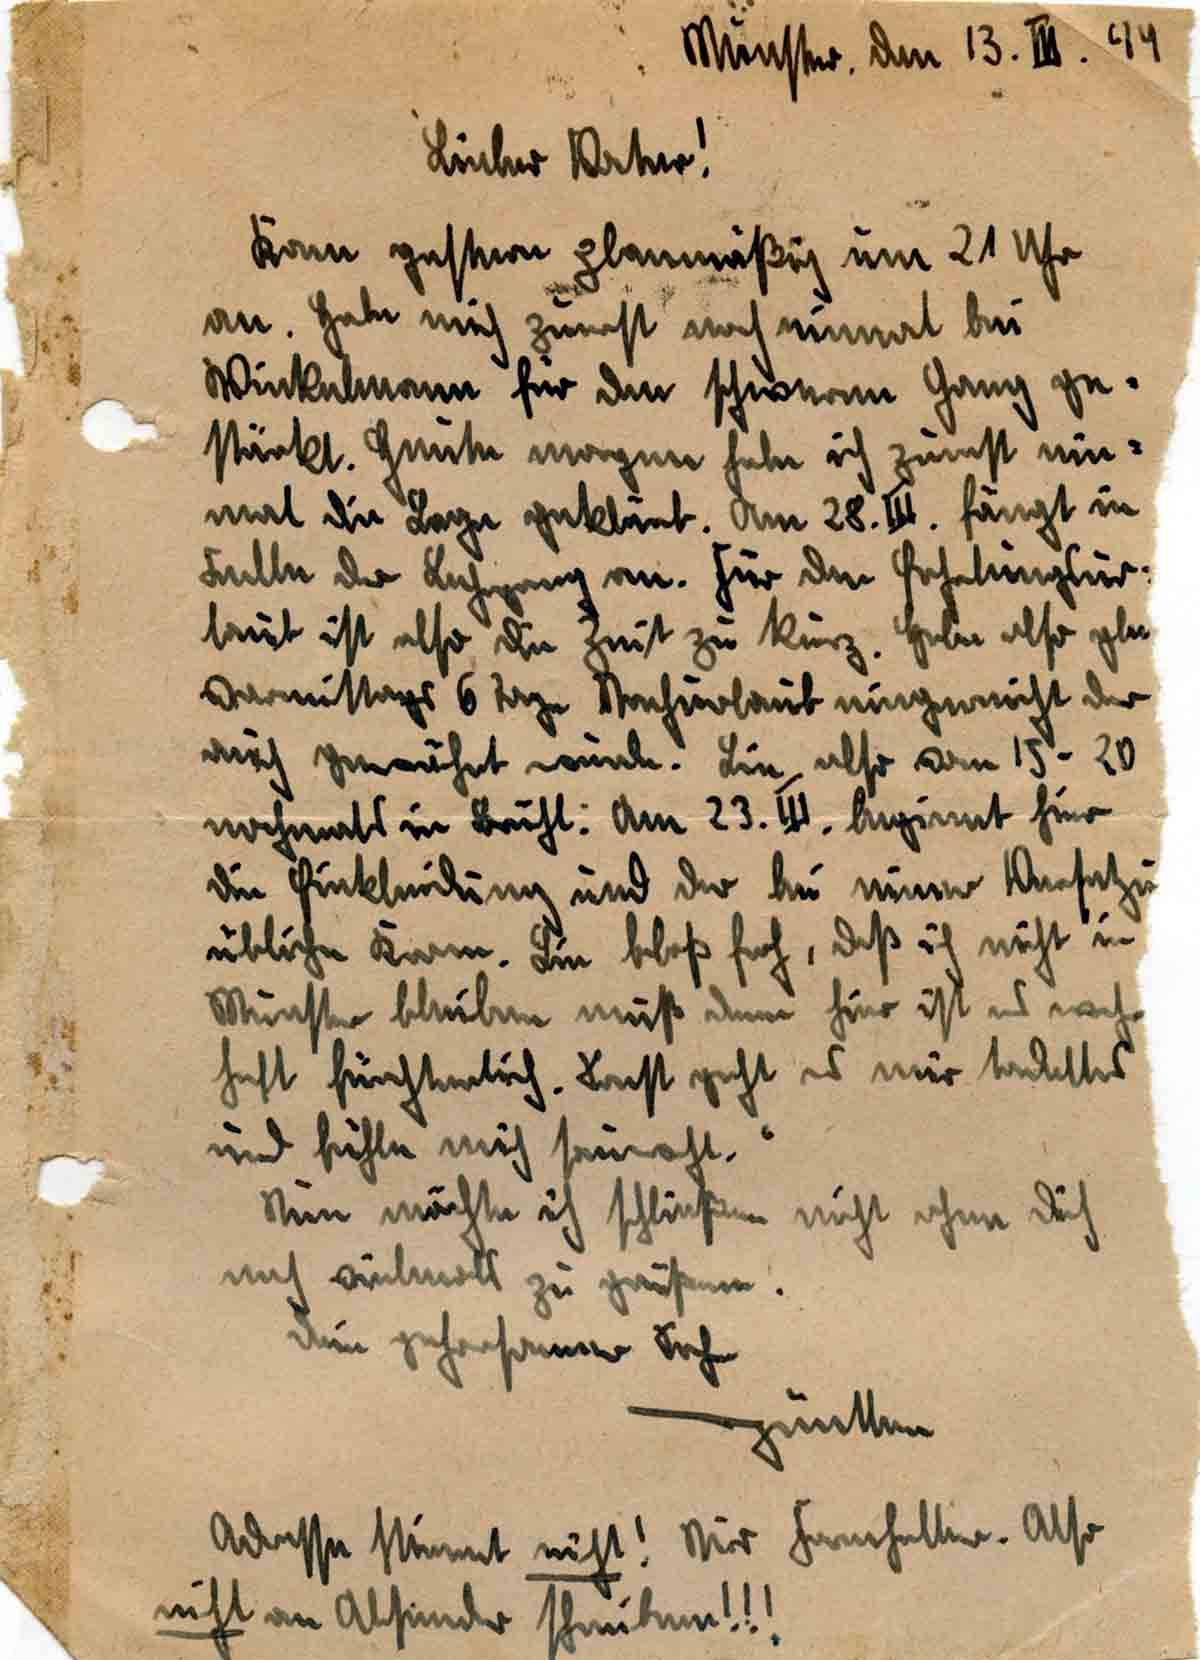 Münster, den 13. III. 44
Lieber Vater!
Kam gestern planmäßig um 21 Uhr
an. Habe mich zuerst noch einmal bei
Winkelmann für den schweren Gang ge-
stärkt. Heute morgen habe ich zuerst ein-
mal die Lage geklärt. Am 28. III. fängt in
der Lehrgang an. Für den Erholungsur-
laub ist also die Zeit zu kurz. Habe also
vormittags 6 Tage Nachurlaub eingereicht der
auch gewährt wurde. Bin also vom 15 - 20
nochmals in Brühl. Am 23. III. beginnt hier
die Einkleidung und der bei einer
übliche Kram. Bin bloß froh, daß ich nicht in
Münster bleiben muß denn hier ist es wahr-
haft fürchterlich. Sonst geht es mir tadellos
und fühle mich sauwohl.
Nun möchte ich schließen nicht ohne Dich
noch vielmals zu grüßen.
Dein gehorsamer Sohn
Adresse stimmt nicht! Nur Also
nicht an Absender schreiben!!!